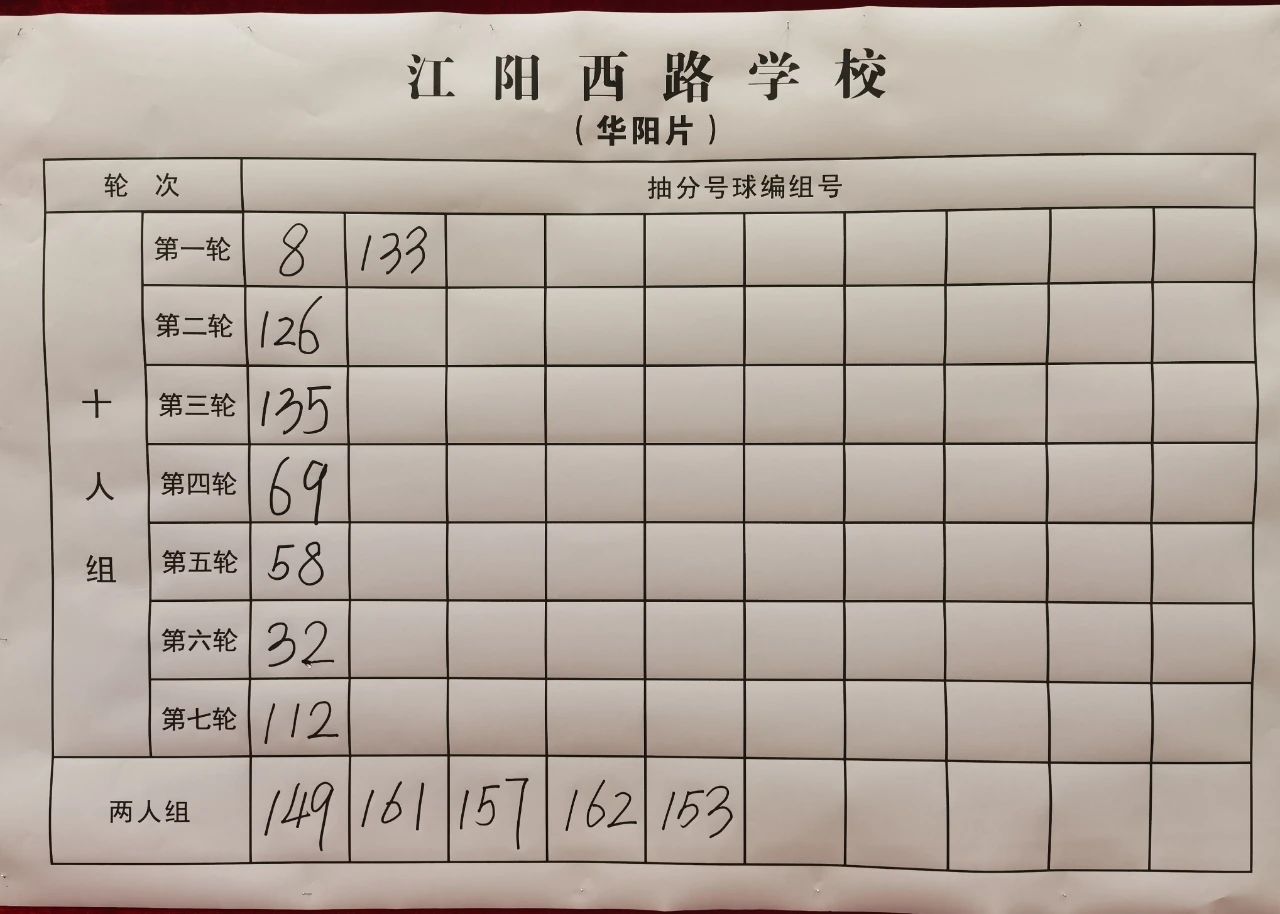 江阳西路学校
（华阳片）
轮次 抽分号球编组号
十人组
第一轮 8 133
第二轮 126
第三轮 135
第四轮 69
第五轮 58
第六轮 32
第七轮 112
两人组 149 161 157 162 153